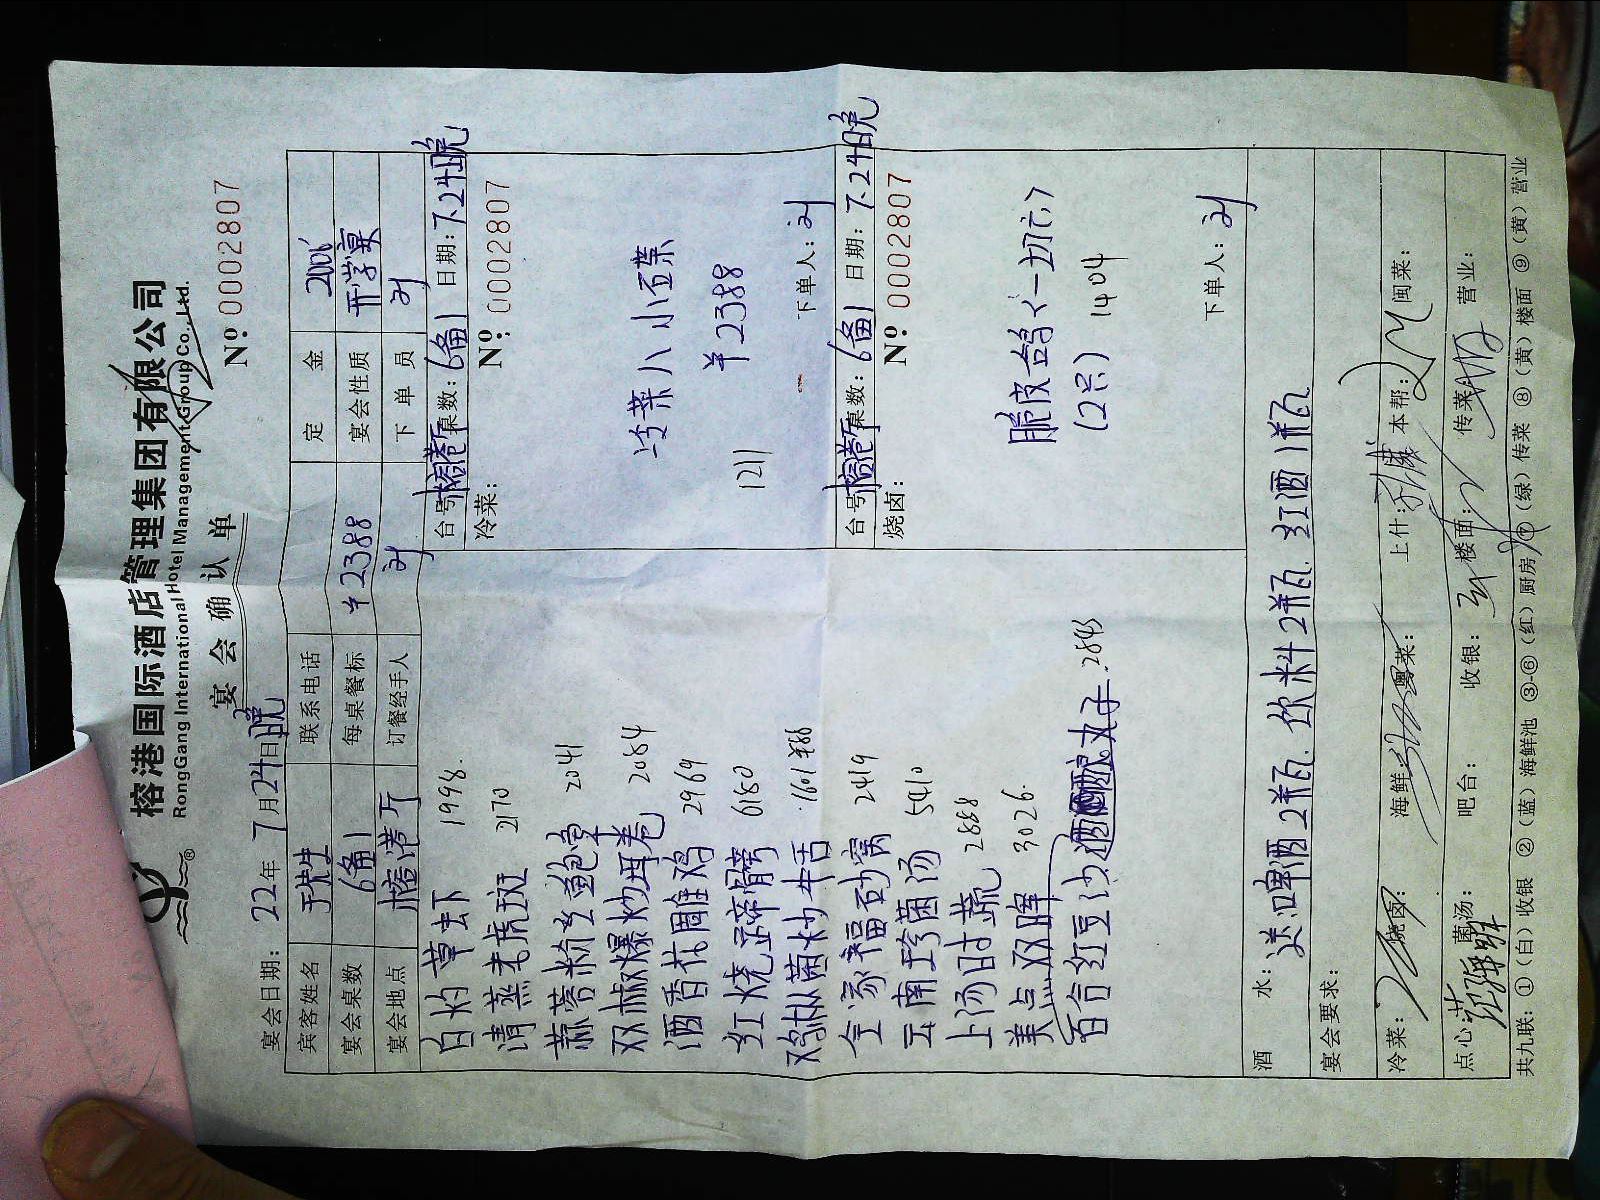 榕港国际酒店管理集团有限公司
RongGang International Hotel Management Group Co., Ltd.
宴会确认单
宴会日期: 22年 7月24日晚
Nº 0002807
宾客姓名 于先生 联系电话 定金 2000
宴会桌数 6备1 每桌餐标 ¥2388 宴会性质 升学宴
宴会地点 榕港厅 订餐经手人 刘 下单员 刘
白灼草虾 1998.
清蒸老虎斑 2170
蒜蓉粉丝鲍 2041
双椒爆炒耳卷 2084
酒香花雕鸡 2969
红烧蹄髈 6180
鸡枞菌炒牛舌 1601
全家福砂窝 2419
云南珍菌汤 5410
上汤时蔬 2888
美点双晖 3026.
百合红豆沙 丸子. 2843
台号: 榕港厅 桌数: 6备1 日期: 7.24晚
冷菜:
Nº: 0002807
八小围菜
¥2388
1211
下单人: 刘
台号: 榕港厅 桌数: 6备1 日期: 7.24晚
烧卤:
Nº 0002807
脆皮鸽<一切六>
(2只) 1404
下单人: 刘
酒水: 送啤酒2瓶. 饮料2瓶. 红酒1瓶
宴会要求:
冷菜: 烧卤: 海鲜: 粤菜: 上什: 本帮: 闽菜:
点心: 羹汤: 吧台: 收银: 楼面: 传菜: 营业:
共九联: ①(白)收银 ②(蓝)海鲜池 ③-⑥(红)厨房 ⑦(绿)传菜 ⑧(黄)楼面 ⑨(黄)营业